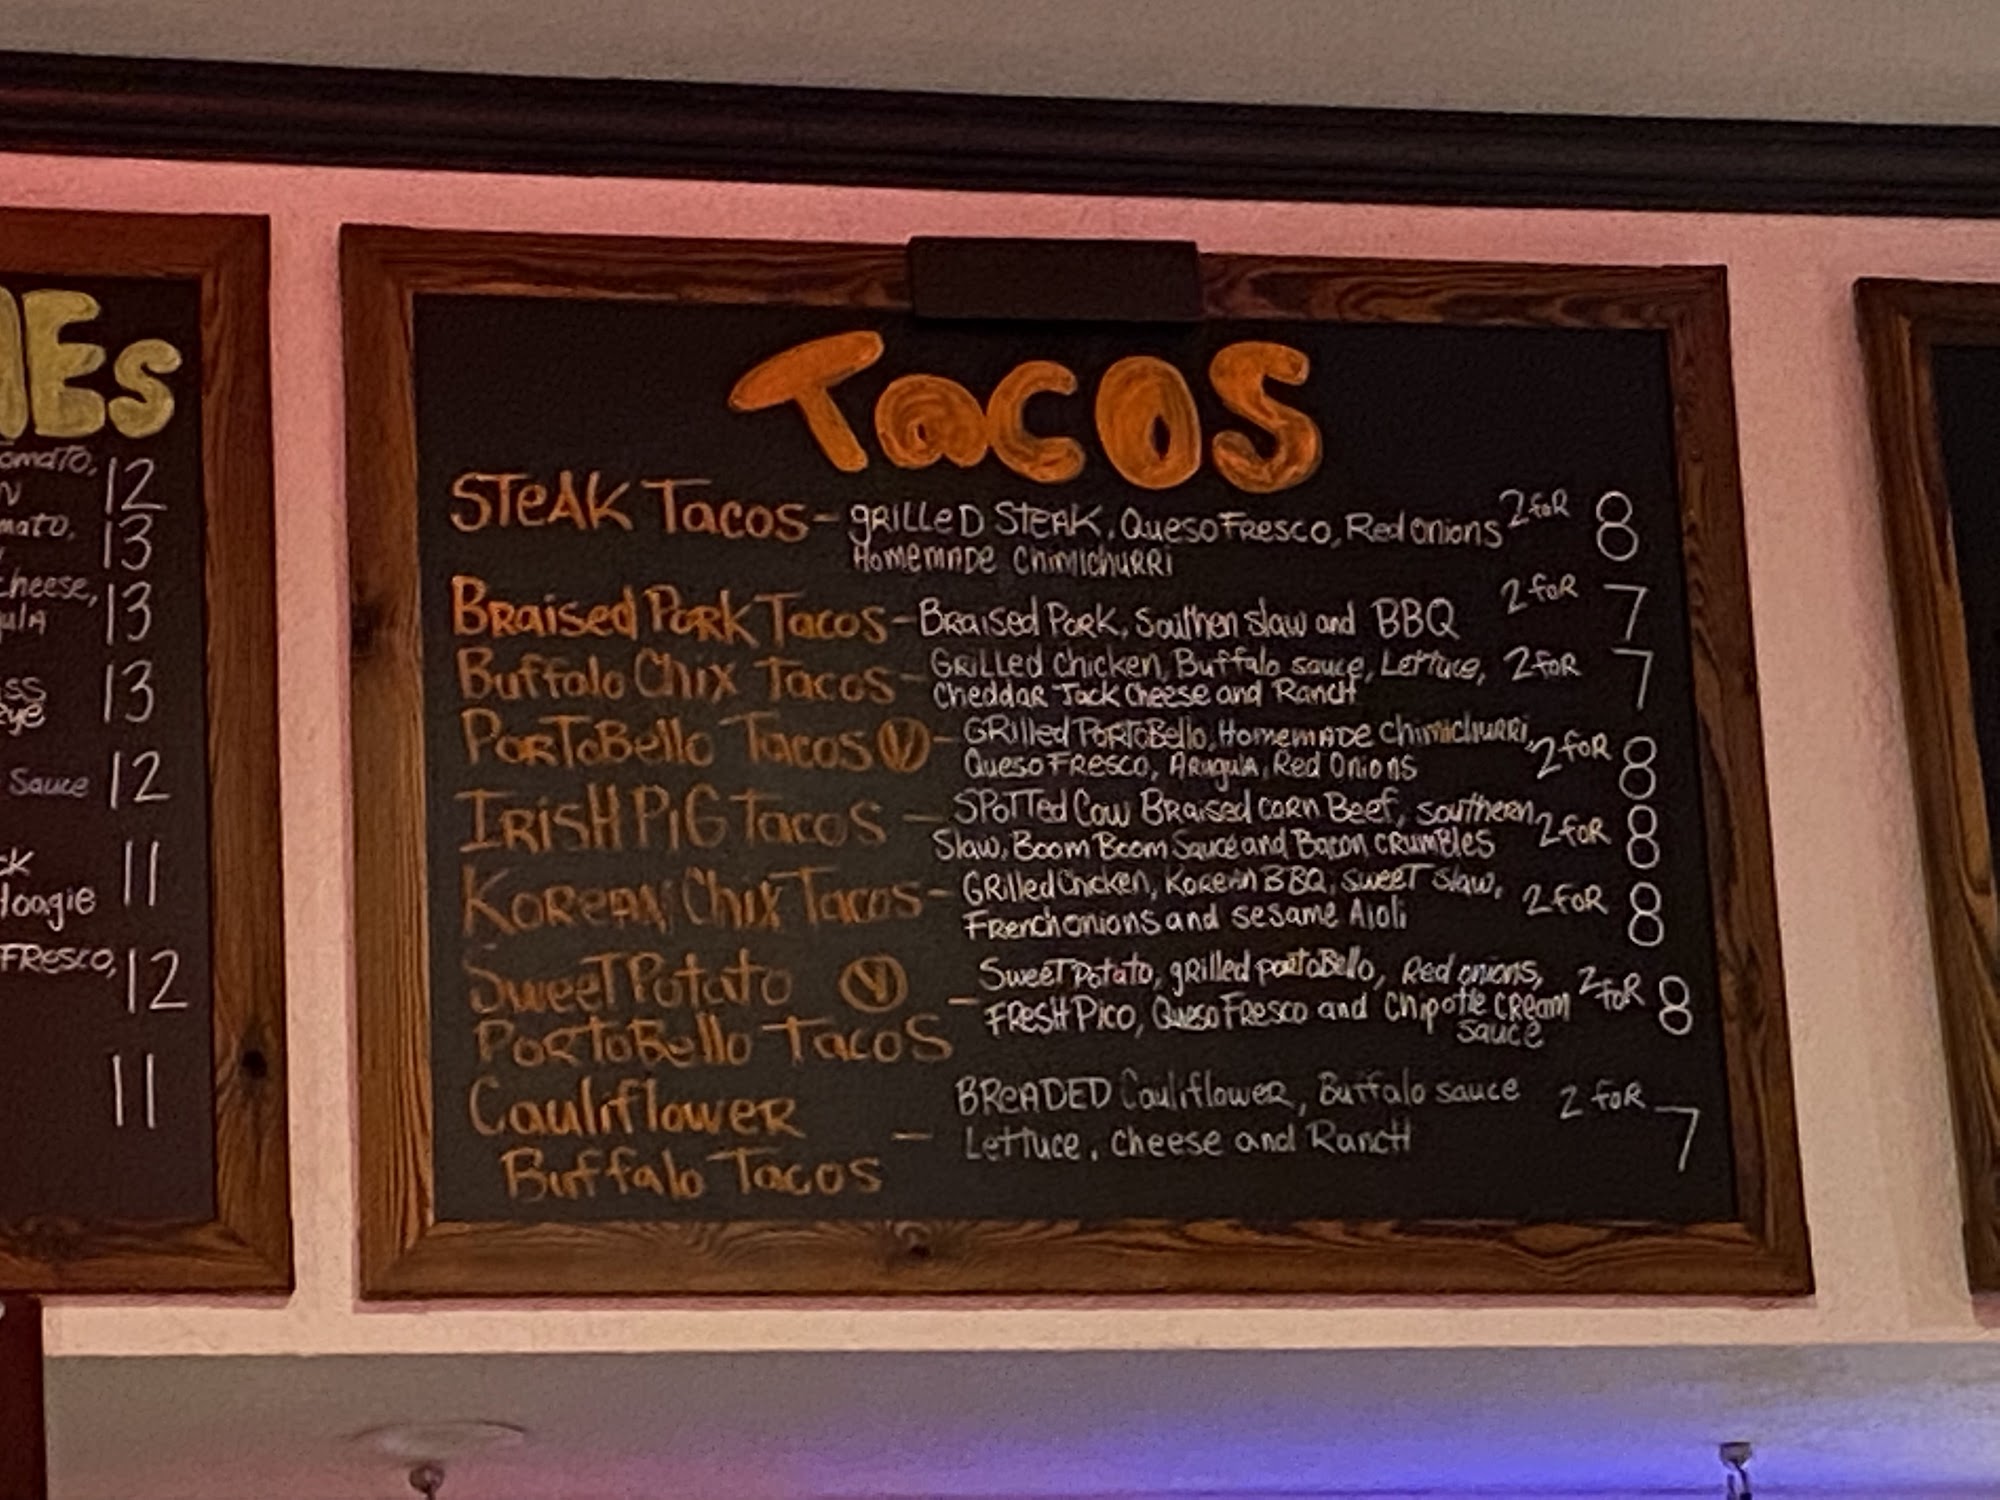 MEs
omato, 12
N
mato, 13
cheese, 13
gula
ss 13
eye
Sauce 12
ck 11
Hoagie
Fresco, 12
11
Tacos
Steak Tacos - grilled Steak, Queso Fresco, Red onions 2 for 8
Homemade Chimichurri
Braised Pork Tacos - Braised Pork, Southen slaw and BBQ 2 for 7
Buffalo Chix Tacos - Grilled Chicken, Buffalo sauce, Lettuce, 2 for 7
Cheddar Jack Cheese and Ranch
Portobello Tacos V - Grilled Portobello, Homemade Chimichurri, 2 for 8
Queso Fresco, Arugula, Red Onions
Irish Pig Tacos - Spotted Cow Braised corn Beef, southern 2 for 8
Slaw, Boom Boom Sauce and Bacon crumbles
Korean Chix Tacos - Grilled Chicken, Korean BBQ, sweet slaw, 2 for 8
French onions and sesame Aioli
Sweet Potato V - Sweet Potato, grilled portobello, Red onions, 2 for 8
Portobello Tacos Fresh Pico, Queso Fresco and Chipotle cream
sauce
Cauliflower - Breaded Cauliflower, Buffalo sauce 2 for 7
Buffalo Tacos Lettuce, cheese and Ranch